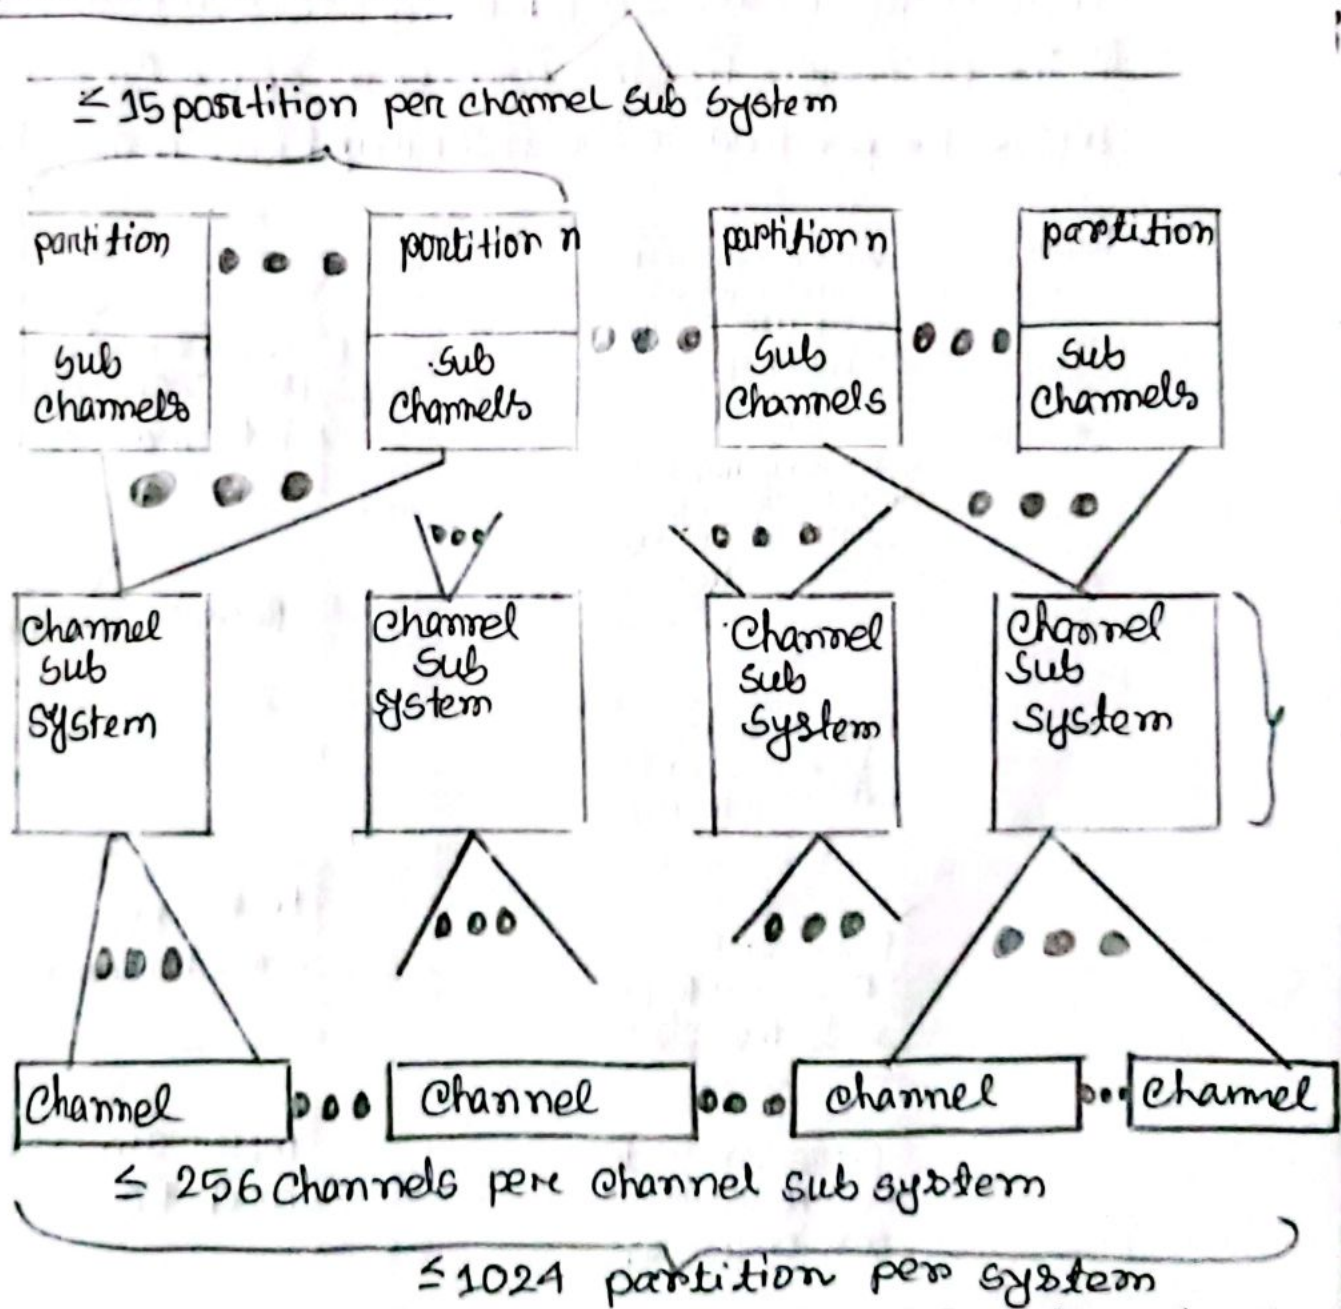 ≤ 15 partition per channel sub system
partition
partition n
partition n
partition
sub
channels
sub
channels
sub
channels
sub
channels
channel
sub
system
channel
sub
system
channel
sub
system
channel
sub
system
channel
channel
channel
channel
≤ 256 channels per channel sub system
≤ 1024 partition per system